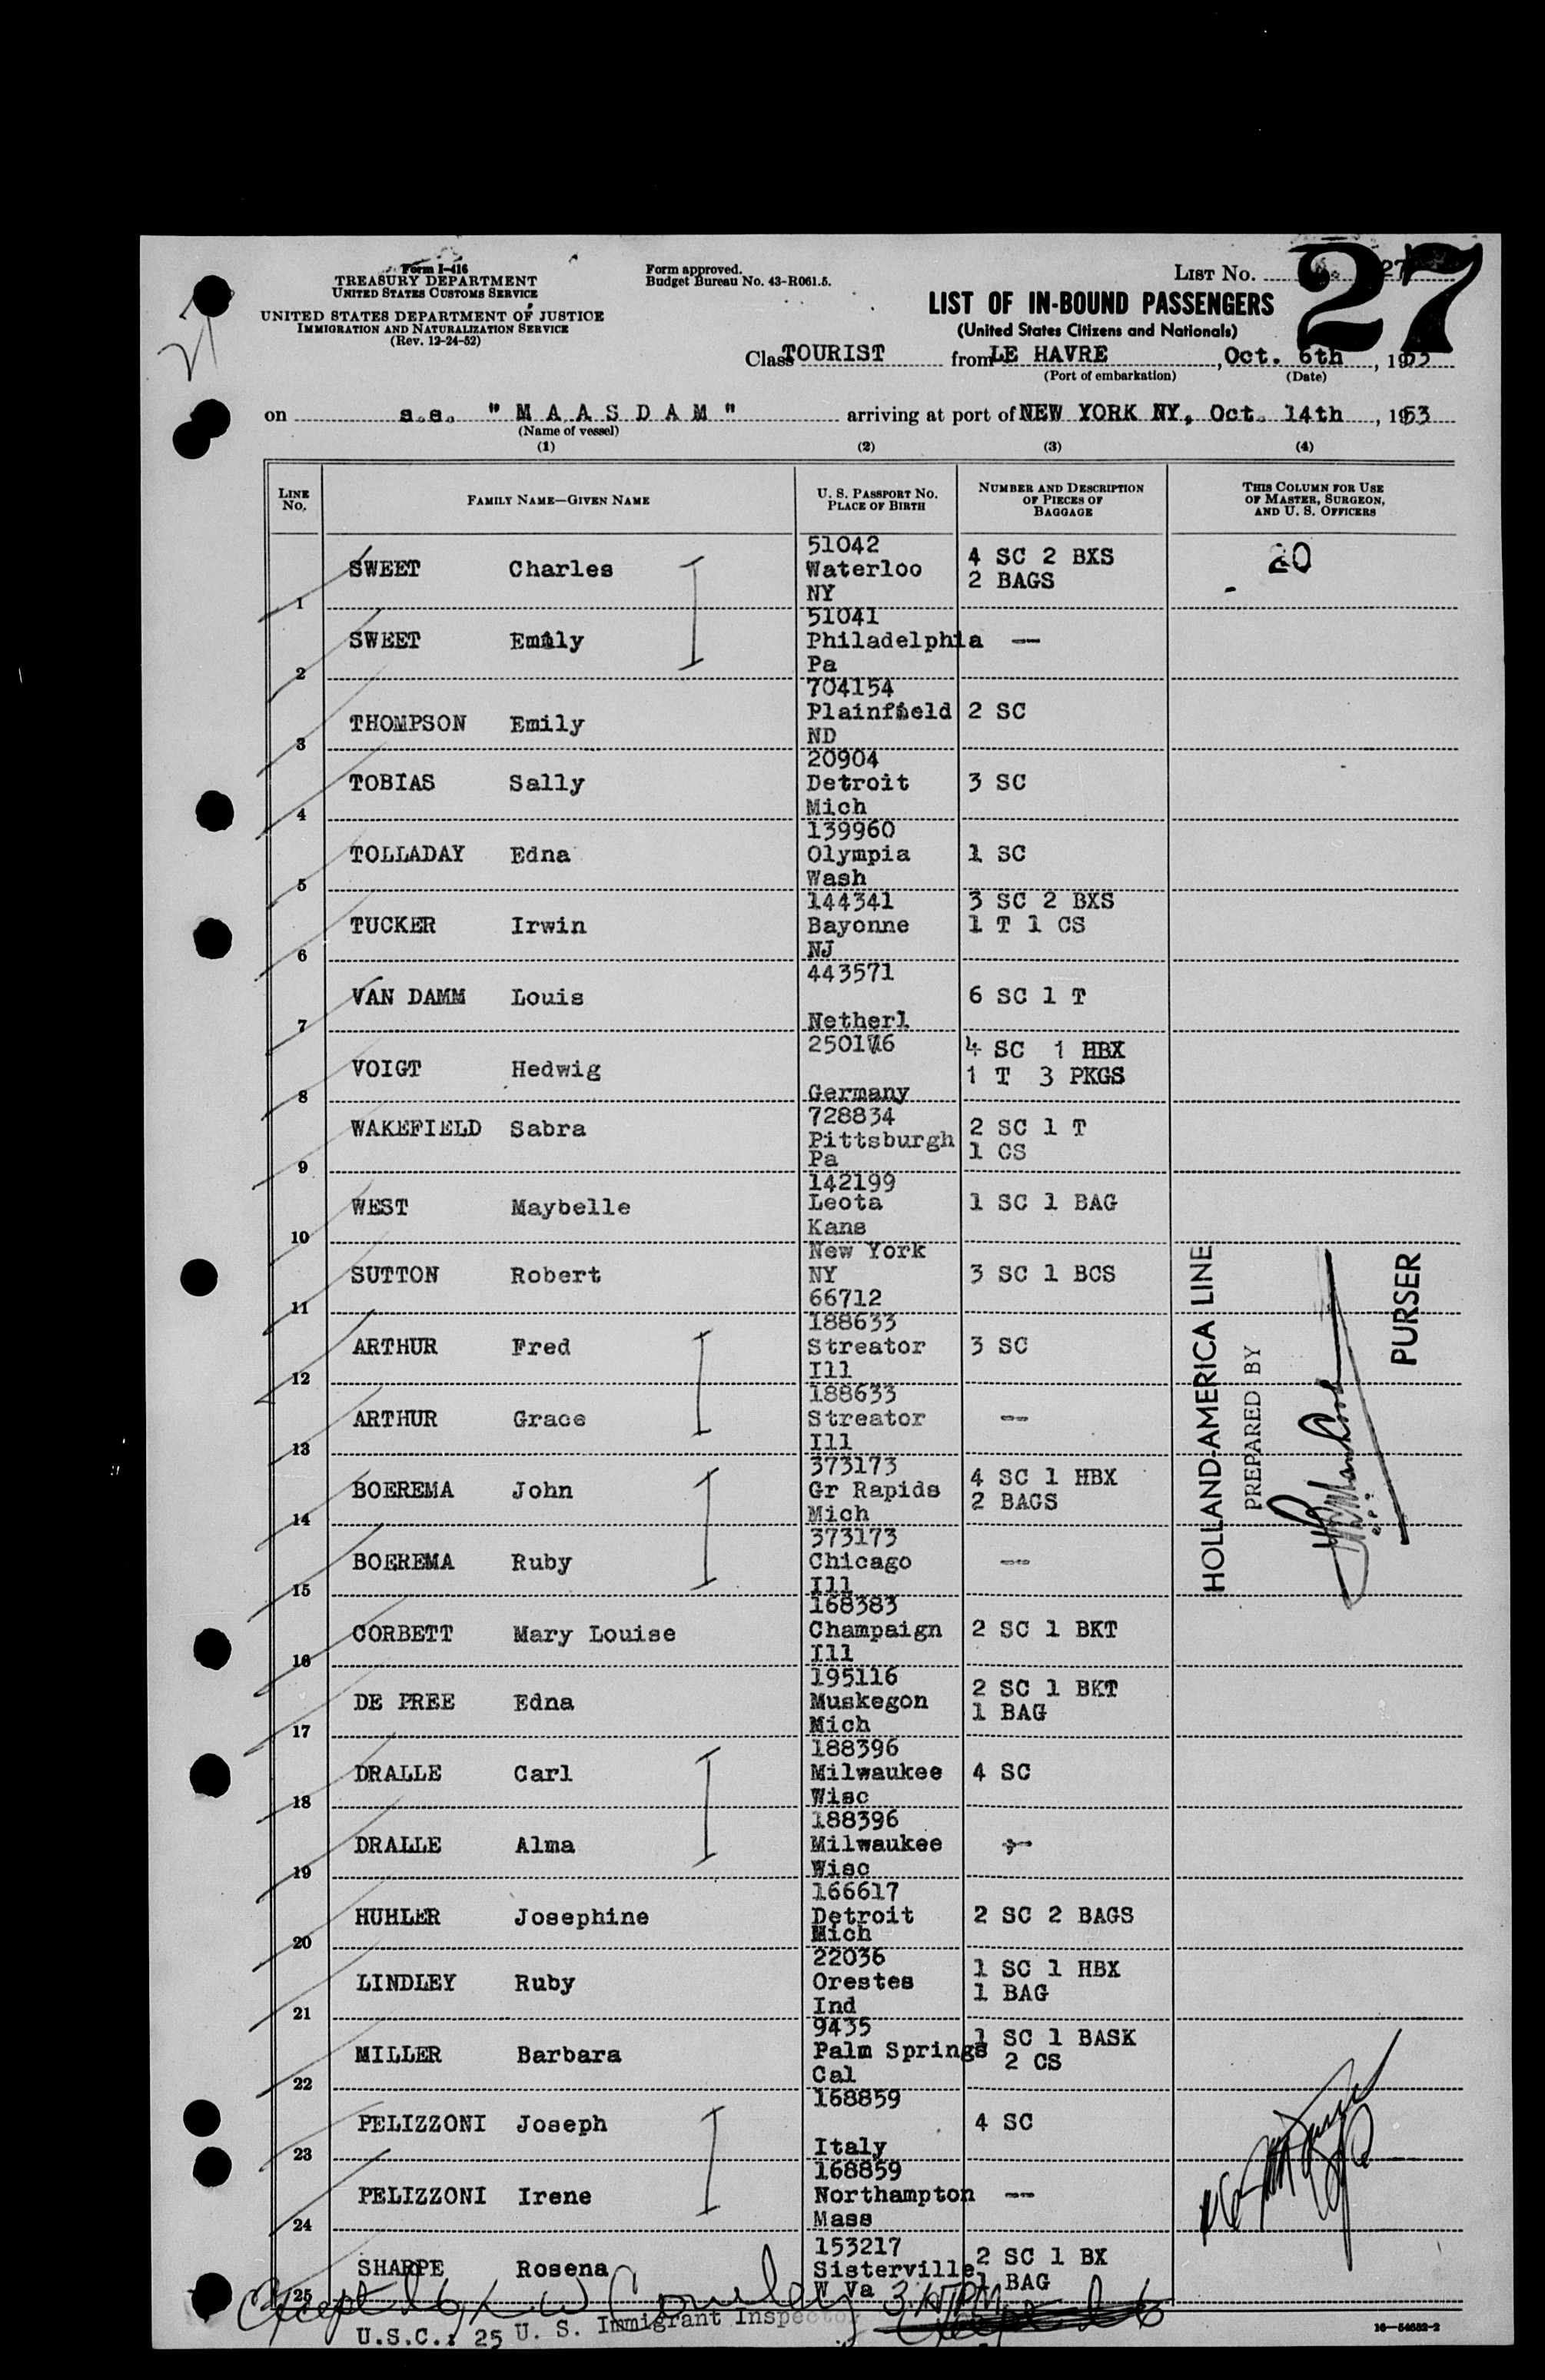 27
Form I-416
TREASURY DEPARTMENT
UNITED STATES CUSTOMS SERVICE
UNITED STATES DEPARTMENT OF JUSTICE
IMMIGRATION AND NATURALIZATION SERVICE
(Rev. 12-24-52)
Form approved.
Budget Bureau No. 43-R061.5.
LIST No. 27
27
LIST OF IN-BOUND PASSENGERS
(United States Citizens and Nationals)
Class TOURIST from LE HAVRE, Oct. 6th, 1953
(Port of embarkation) (Date)
on s.s. "MAASDAM" arriving at port of NEW YORK NY, Oct. 14th, 1953
(Name of vessel)
(1) (2) (3) (4)
LINE No. FAMILY NAME—GIVEN NAME U. S. PASSPORT NO. PLACE OF BIRTH NUMBER AND DESCRIPTION OF PIECES OF BAGGAGE THIS COLUMN FOR USE OF MASTER, SURGEON, AND U. S. OFFICERS
1 SWEET Charles 51042 Waterloo NY 4 SC 2 BXS 2 BAGS 20
2 SWEET Emily 51041 Philadelphia Pa --
3 THOMPSON Emily 704154 Plainfield ND 2 SC
4 TOBIAS Sally 20904 Detroit Mich 3 SC
5 TOLLADAY Edna 139960 Olympia Wash 1 SC
6 TUCKER Irwin 144341 Bayonne NJ 3 SC 2 BXS 1 T 1 CS
7 VAN DAMM Louis 443571 Netherl 6 SC 1 T
8 VOIGT Hedwig Germany 4 SC 1 HBX 1 T 3 PKGS
9 WAKEFIELD Sabra 728834 Pittsburgh Pa 2 SC 1 T 1 CS
10 WEST Maybelle 142199 Leota Kans 1 SC 1 BAG
11 SUTTON Robert New York NY 66712 3 SC 1 BCS
12 ARTHUR Fred 188633 Streator Ill 3 SC
13 ARTHUR Grace 188633 Streator Ill --
14 BOEREMA John 373173 Gr Rapids Mich 4 SC 1 HBX 2 BAGS
15 BOEREMA Ruby 373173 Chicago Ill --
16 CORBETT Mary Louise 168383 Champaign Ill 2 SC 1 BKT
17 DE PREE Edna 195116 Muskegon Mich 2 SC 1 BKT 1 BAG
18 DRALLE Carl 188396 Milwaukee Wisc 4 SC
19 DRALLE Alma 188396 Milwaukee Wisc --
20 HUHLER Josephine 166617 Detroit Mich 2 SC 2 BAGS
21 LINDLEY Ruby 22036 Orestes Ind 1 SC 1 HBX 1 BAG
22 MILLER Barbara 9435 Palm Springs Cal 1 SC 1 BASK 2 CS
23 PELIZZONI Joseph 168859 Italy 4 SC
24 PELIZZONI Irene 168859 Northampton Mass --
25 SHARPE Rosena 153217 Sisterville W Va 2 SC 1 BX 1 BAG
HOLLAND-AMERICA LINE
PREPARED BY
PURSER
U. S. Immigrant Inspector
U.S.C.: 25
16—54652-2